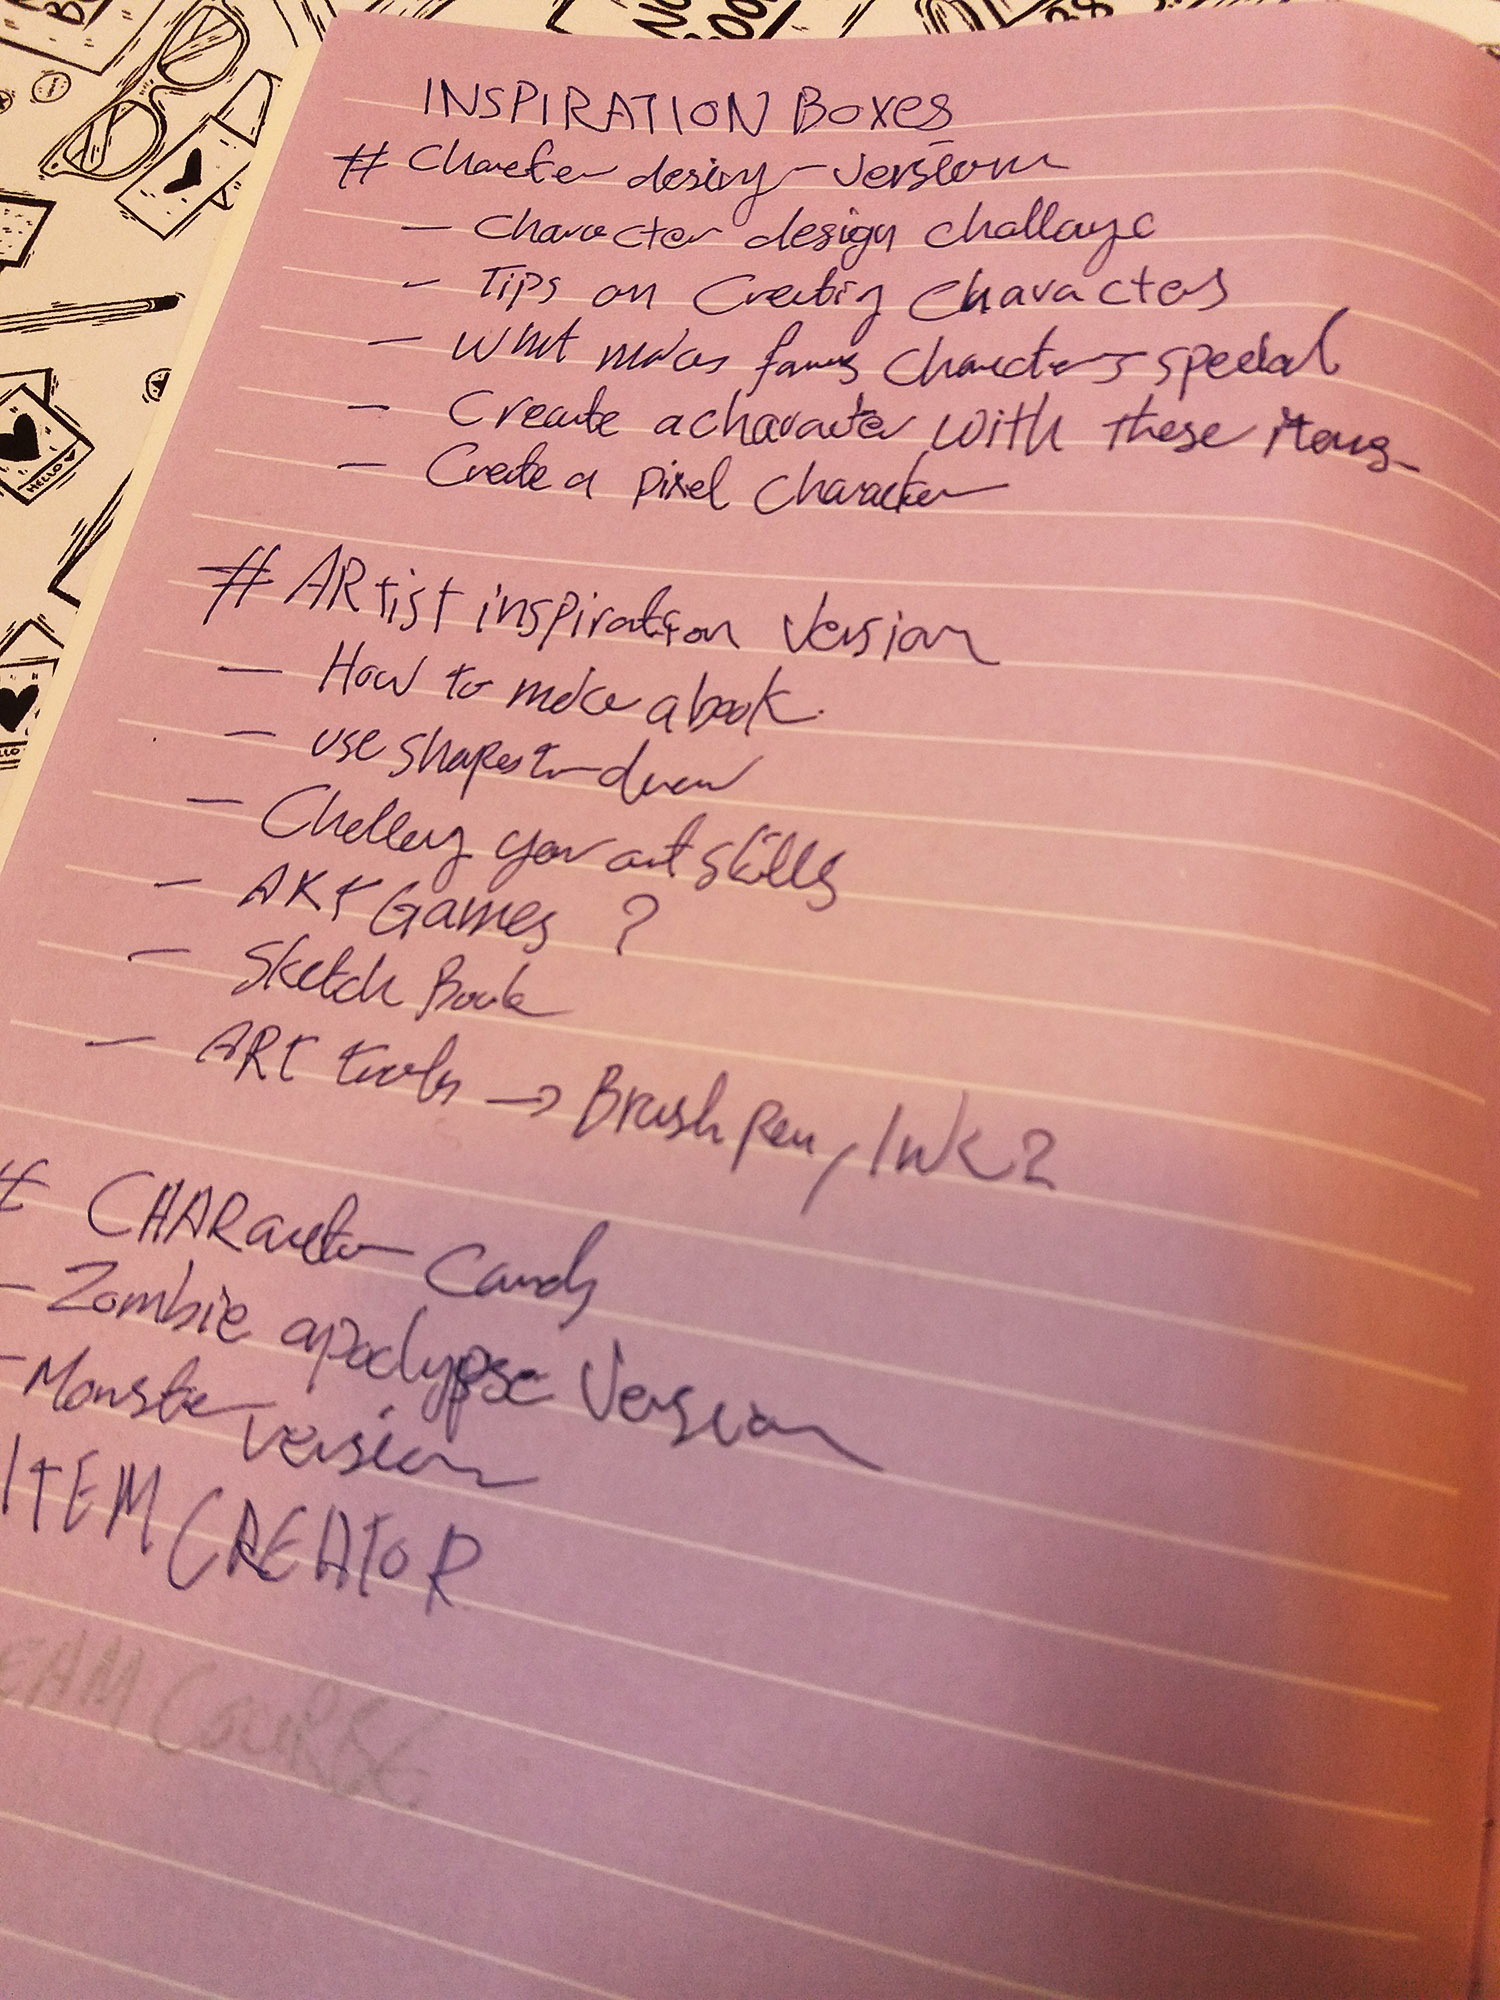 INSPIRATION Boxes
# Character design - Version
- Character design challange
- Tips on Creating characters
- What makes famus characters special
- Create a character with these items
- Create a pixel character
# ARtist inspiration Version
- How to make a book.
- use shapes to draw
- Challeng your art skills
- ARt Games ?
- Sketch Book
- ART tools → Brush pen, INK?
# CHARacter Cards
- Zombie apoclypse Version
- Monster version
ITEM CREATOR
EAM COURSE
HELLO